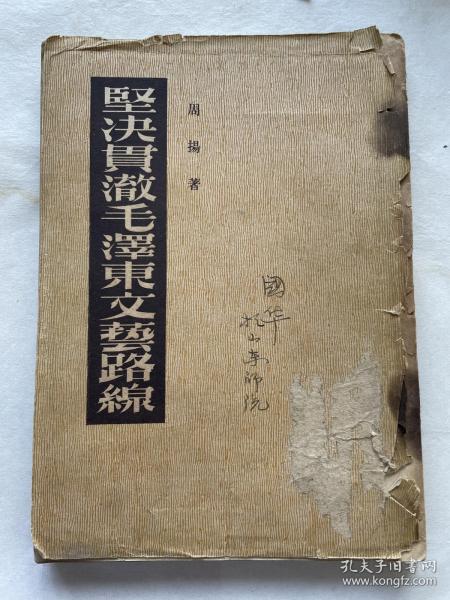 堅决貫澈毛澤東文藝路線
周揚著
國华
於山东师院
孔夫子旧书网
www.kongfz.com